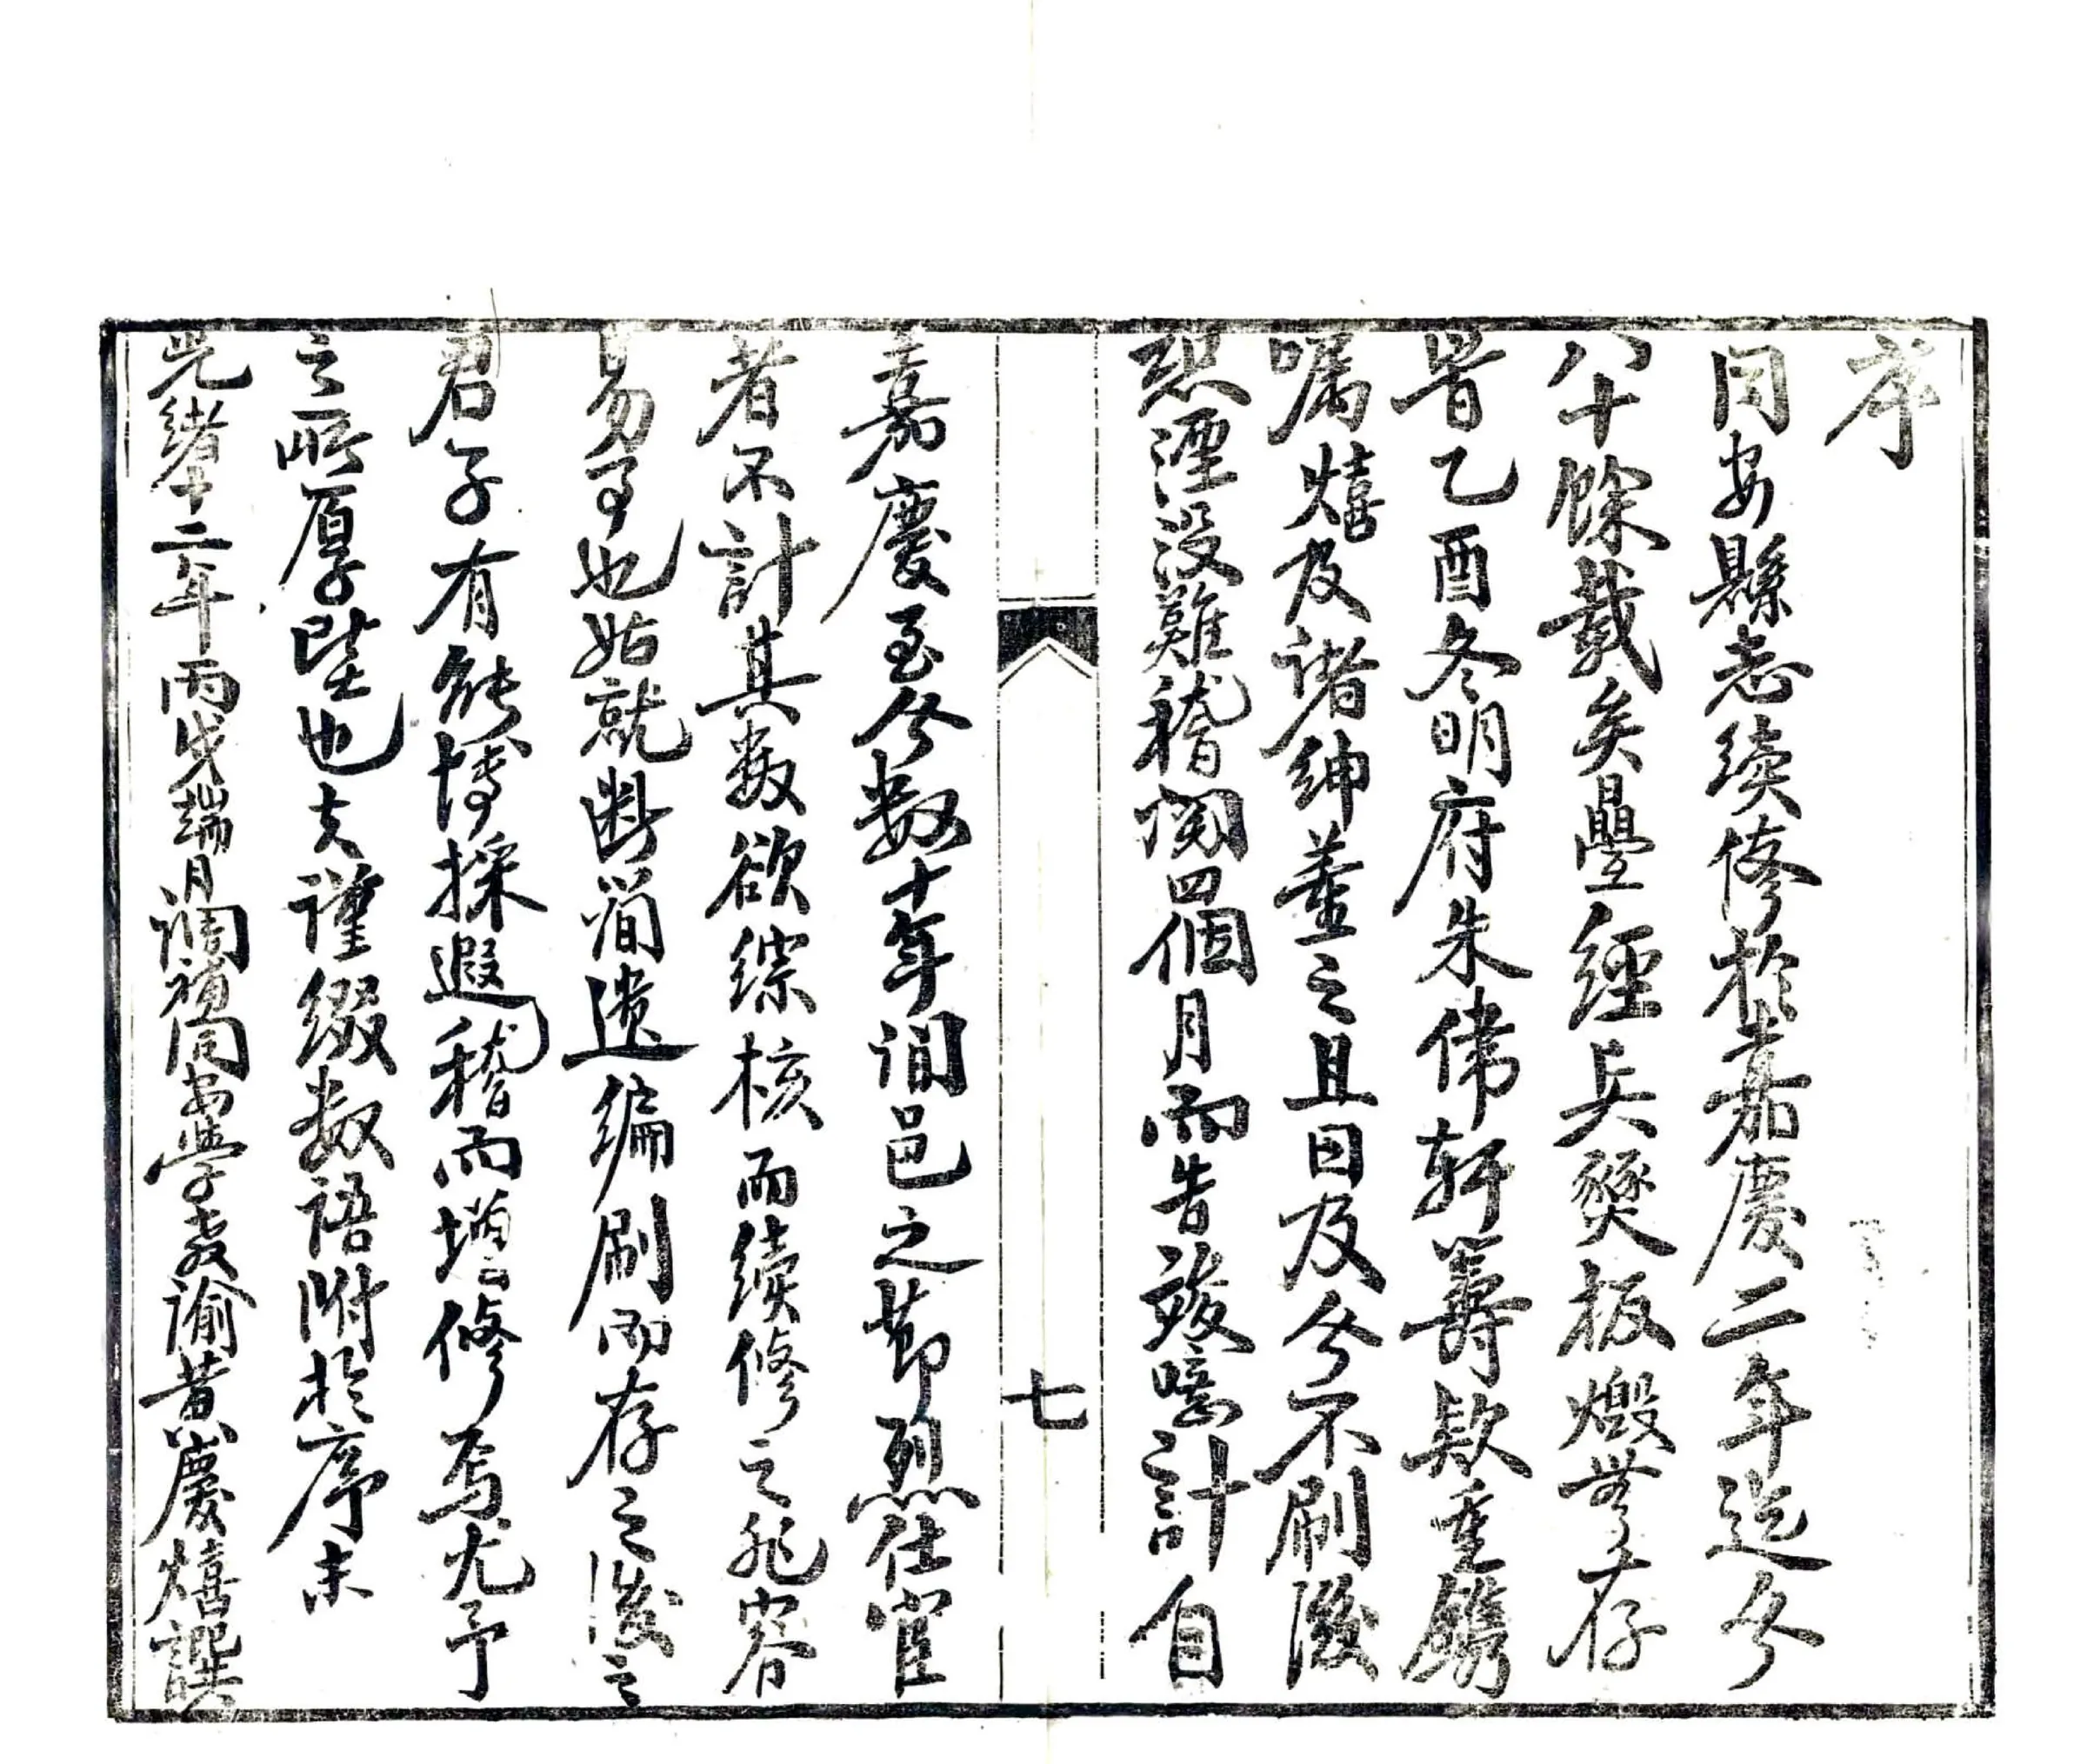 序
同安縣志續修於嘉慶二年迄今
八十餘載矣疊經兵燹板燬無存
昔乙酉冬明府朱偉軒籌款重鐫
囑熺及諸紳董之且曰及今不刷後
恐湮没難稽閱四個月而告竣噫計自
七
嘉慶至今数十年間邑之節烈仕宦
者不計其数欲綜核而續修之非容
易事也姑就断簡遺编刷而存之後之
君子有能博採遐稽而增修焉尤予
之所厚望也夫谨缀数語附於序末
光緒十二年丙戌端月調補同安學教諭黄慶熺譔